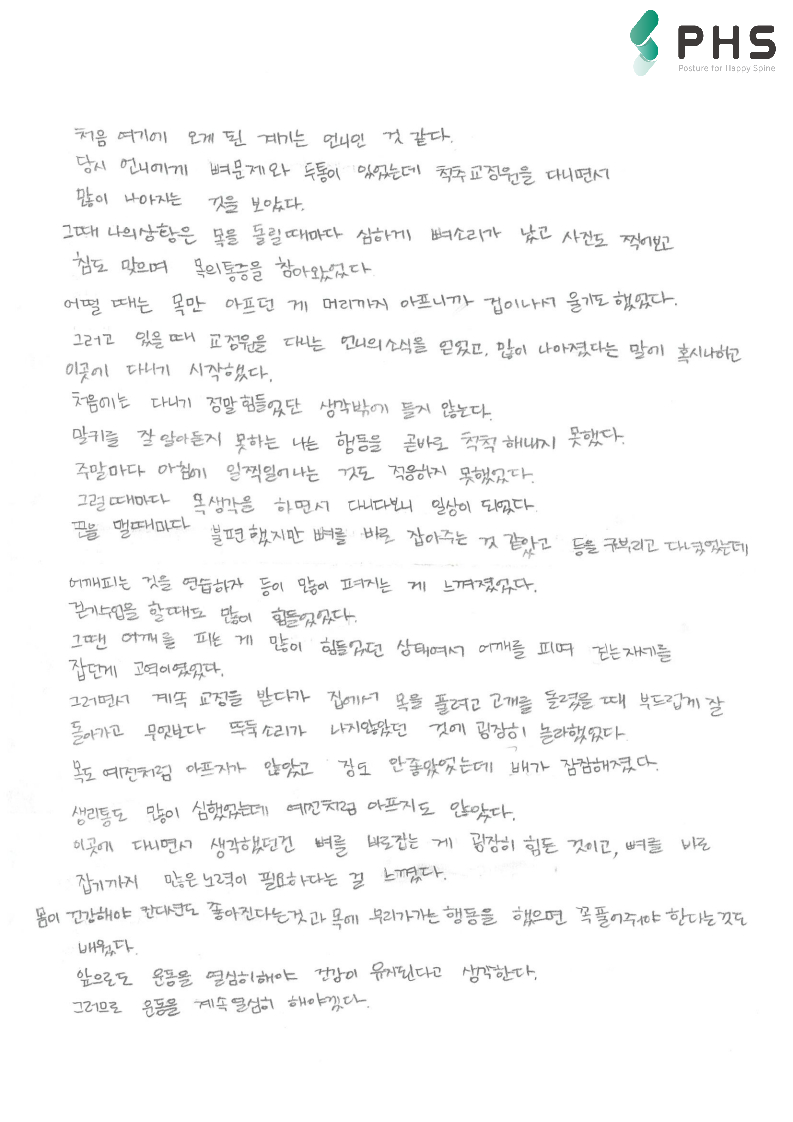 PHS
Posture for Happy Spine
처음 여기에 오게 된 계기는 언니인 것 같다.
당시 언니에게 뼈문제와 두통이 있었는데 척추교정원을 다니면서
많이 나아지는 것을 보았다.
그때 나의상황은 목을 돌릴때마다 심하게 뼈소리가 났고 사진도 찍어보고
침도 맞으며 목의통증을 참아왔었다
어떨 때는 목만 아프던 게 머리까지 아프니까 겁이나서 울기도 했었다.
그러고 있을때 교정원을 다니는 언니의소식을 얻었고, 많이 나아졌다는 말에 혹시나하고
이곳에 다니기 시작했다.
처음에는 다니기 정말힘들었단 생각밖에 들지 않는다.
말귀를 잘알아듣지 못하는 나는 행동을 곧바로 척척 해내지 못했다.
주말마다 아침에 일찍일어나는 것도 적응하지 못했었다.
그럴때마다 목생각을 하면서 다니다보니 일상이 되었다.
끈을 맬때마다 불편했지만 뼈를 바로 잡아주는 것 같았고 등을 구부리고 다녔었는데
어깨피는 것을 연습하자 등이 많이 펴지는 게 느껴졌었다.
걷기수업을 할때도 많이 힘들었었다.
그땐 어깨를 피는 게 많이 힘들었던 상태여서 어깨를 피며 걷는자세를
잡던게 고역이였었다.
그러면서 계속 교정을 받다가 집에서 목을 풀려고 고개를 돌렸을 때 부드럽게 잘
돌아가고 무엇보다 뚜둑소리가 나지않았던 것에 굉장히 놀라했었다.
목도 예전처럼 아프지가 않았고 장도 안좋았었는데 배가 잠잠해졌다.
생리통도 많이 심했었는데 예전처럼 아프지도 않았다.
이곳에 다니면서 생각했던건 뼈를 바로잡는 게 굉장히 힘든 것이고, 뼈를 바로
잡기까지 많은노력이 필요하다는 걸 느꼈다.
몸이 건강해야 컨대션도 좋아진다는것과 목에 무리가가는행동을 했으면 꼭풀어주어야 한다는것도
배웠다.
앞으로도 운동을 열심히해야 건강이 유지된다고 생각한다.
그러므로 운동을 계속열심히 해야겠다.